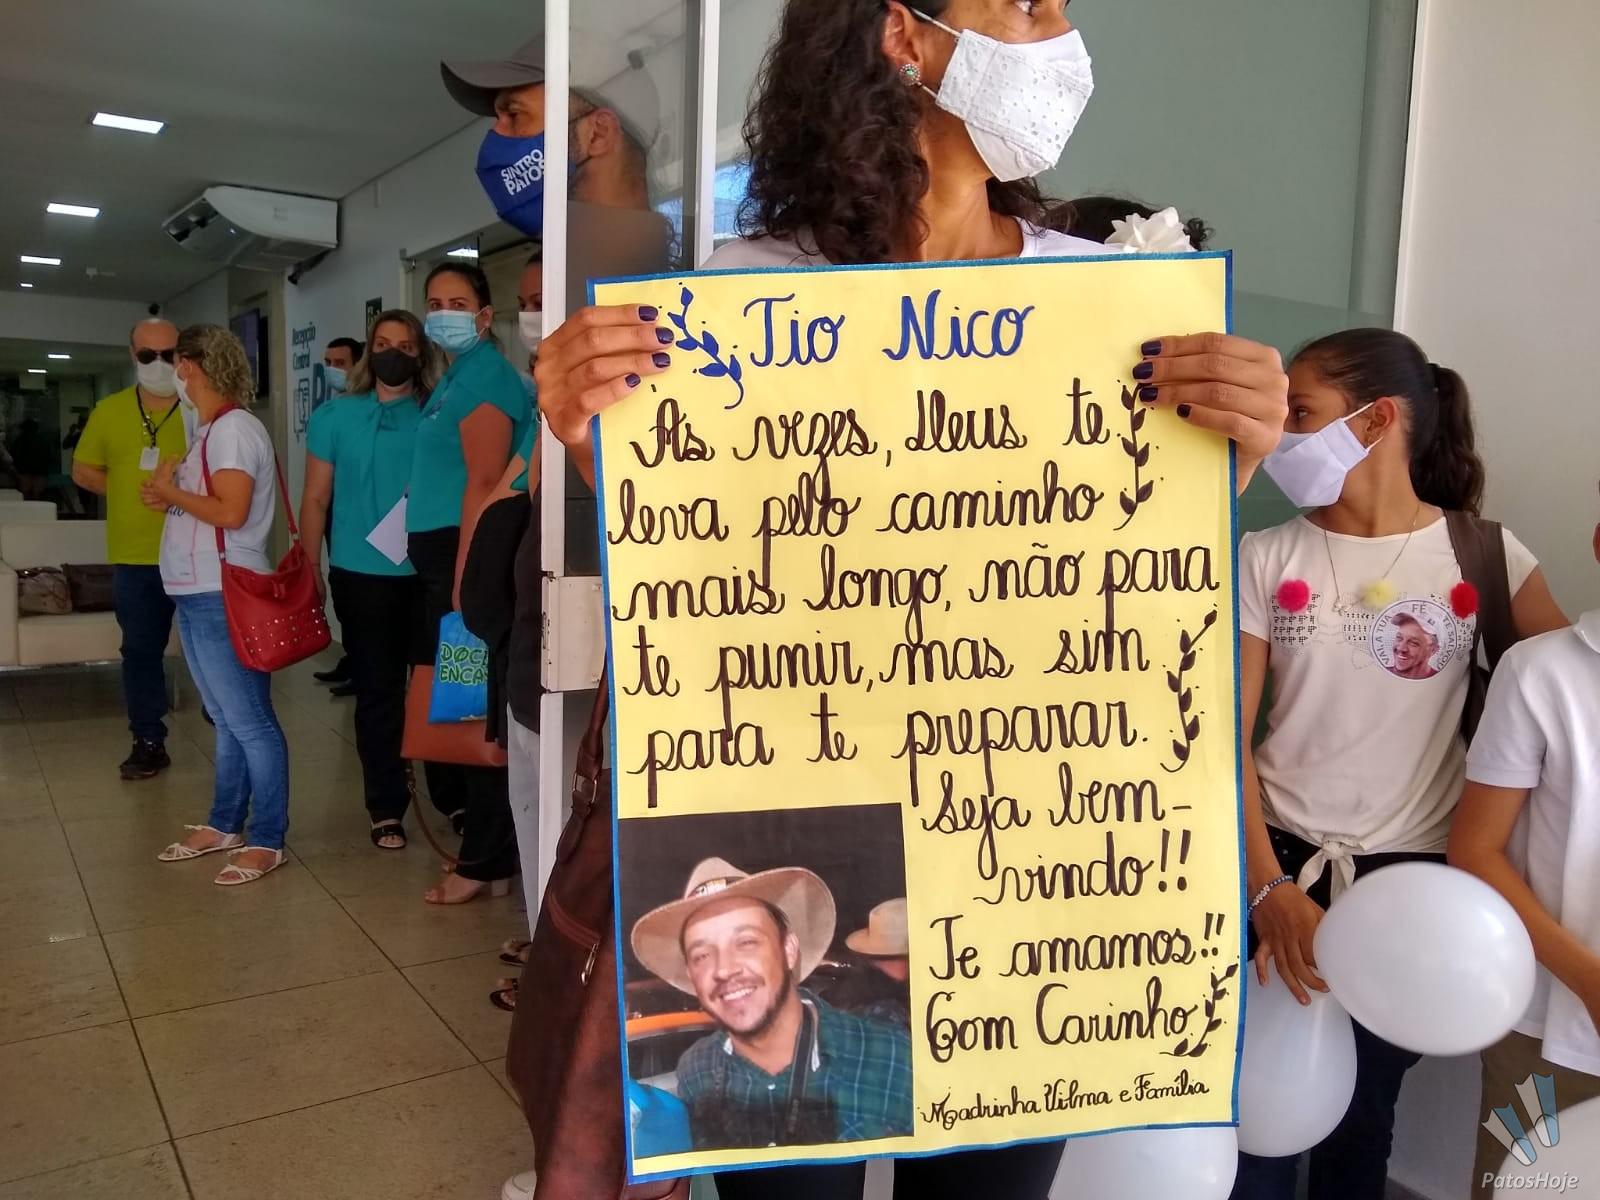 Tio Nico
As vezes, Deus te
leva pelo caminho
mais longo, não para
te punir, mas sim
para te preparar.
Seja bem-
vindo!!
Te amamos!!
Com Carinho
Madrinha Vilma e Família
SINTRO
PATOS
Recepção
Central
VAI, A TUA FÉ TE SALVOU
PatosHoje